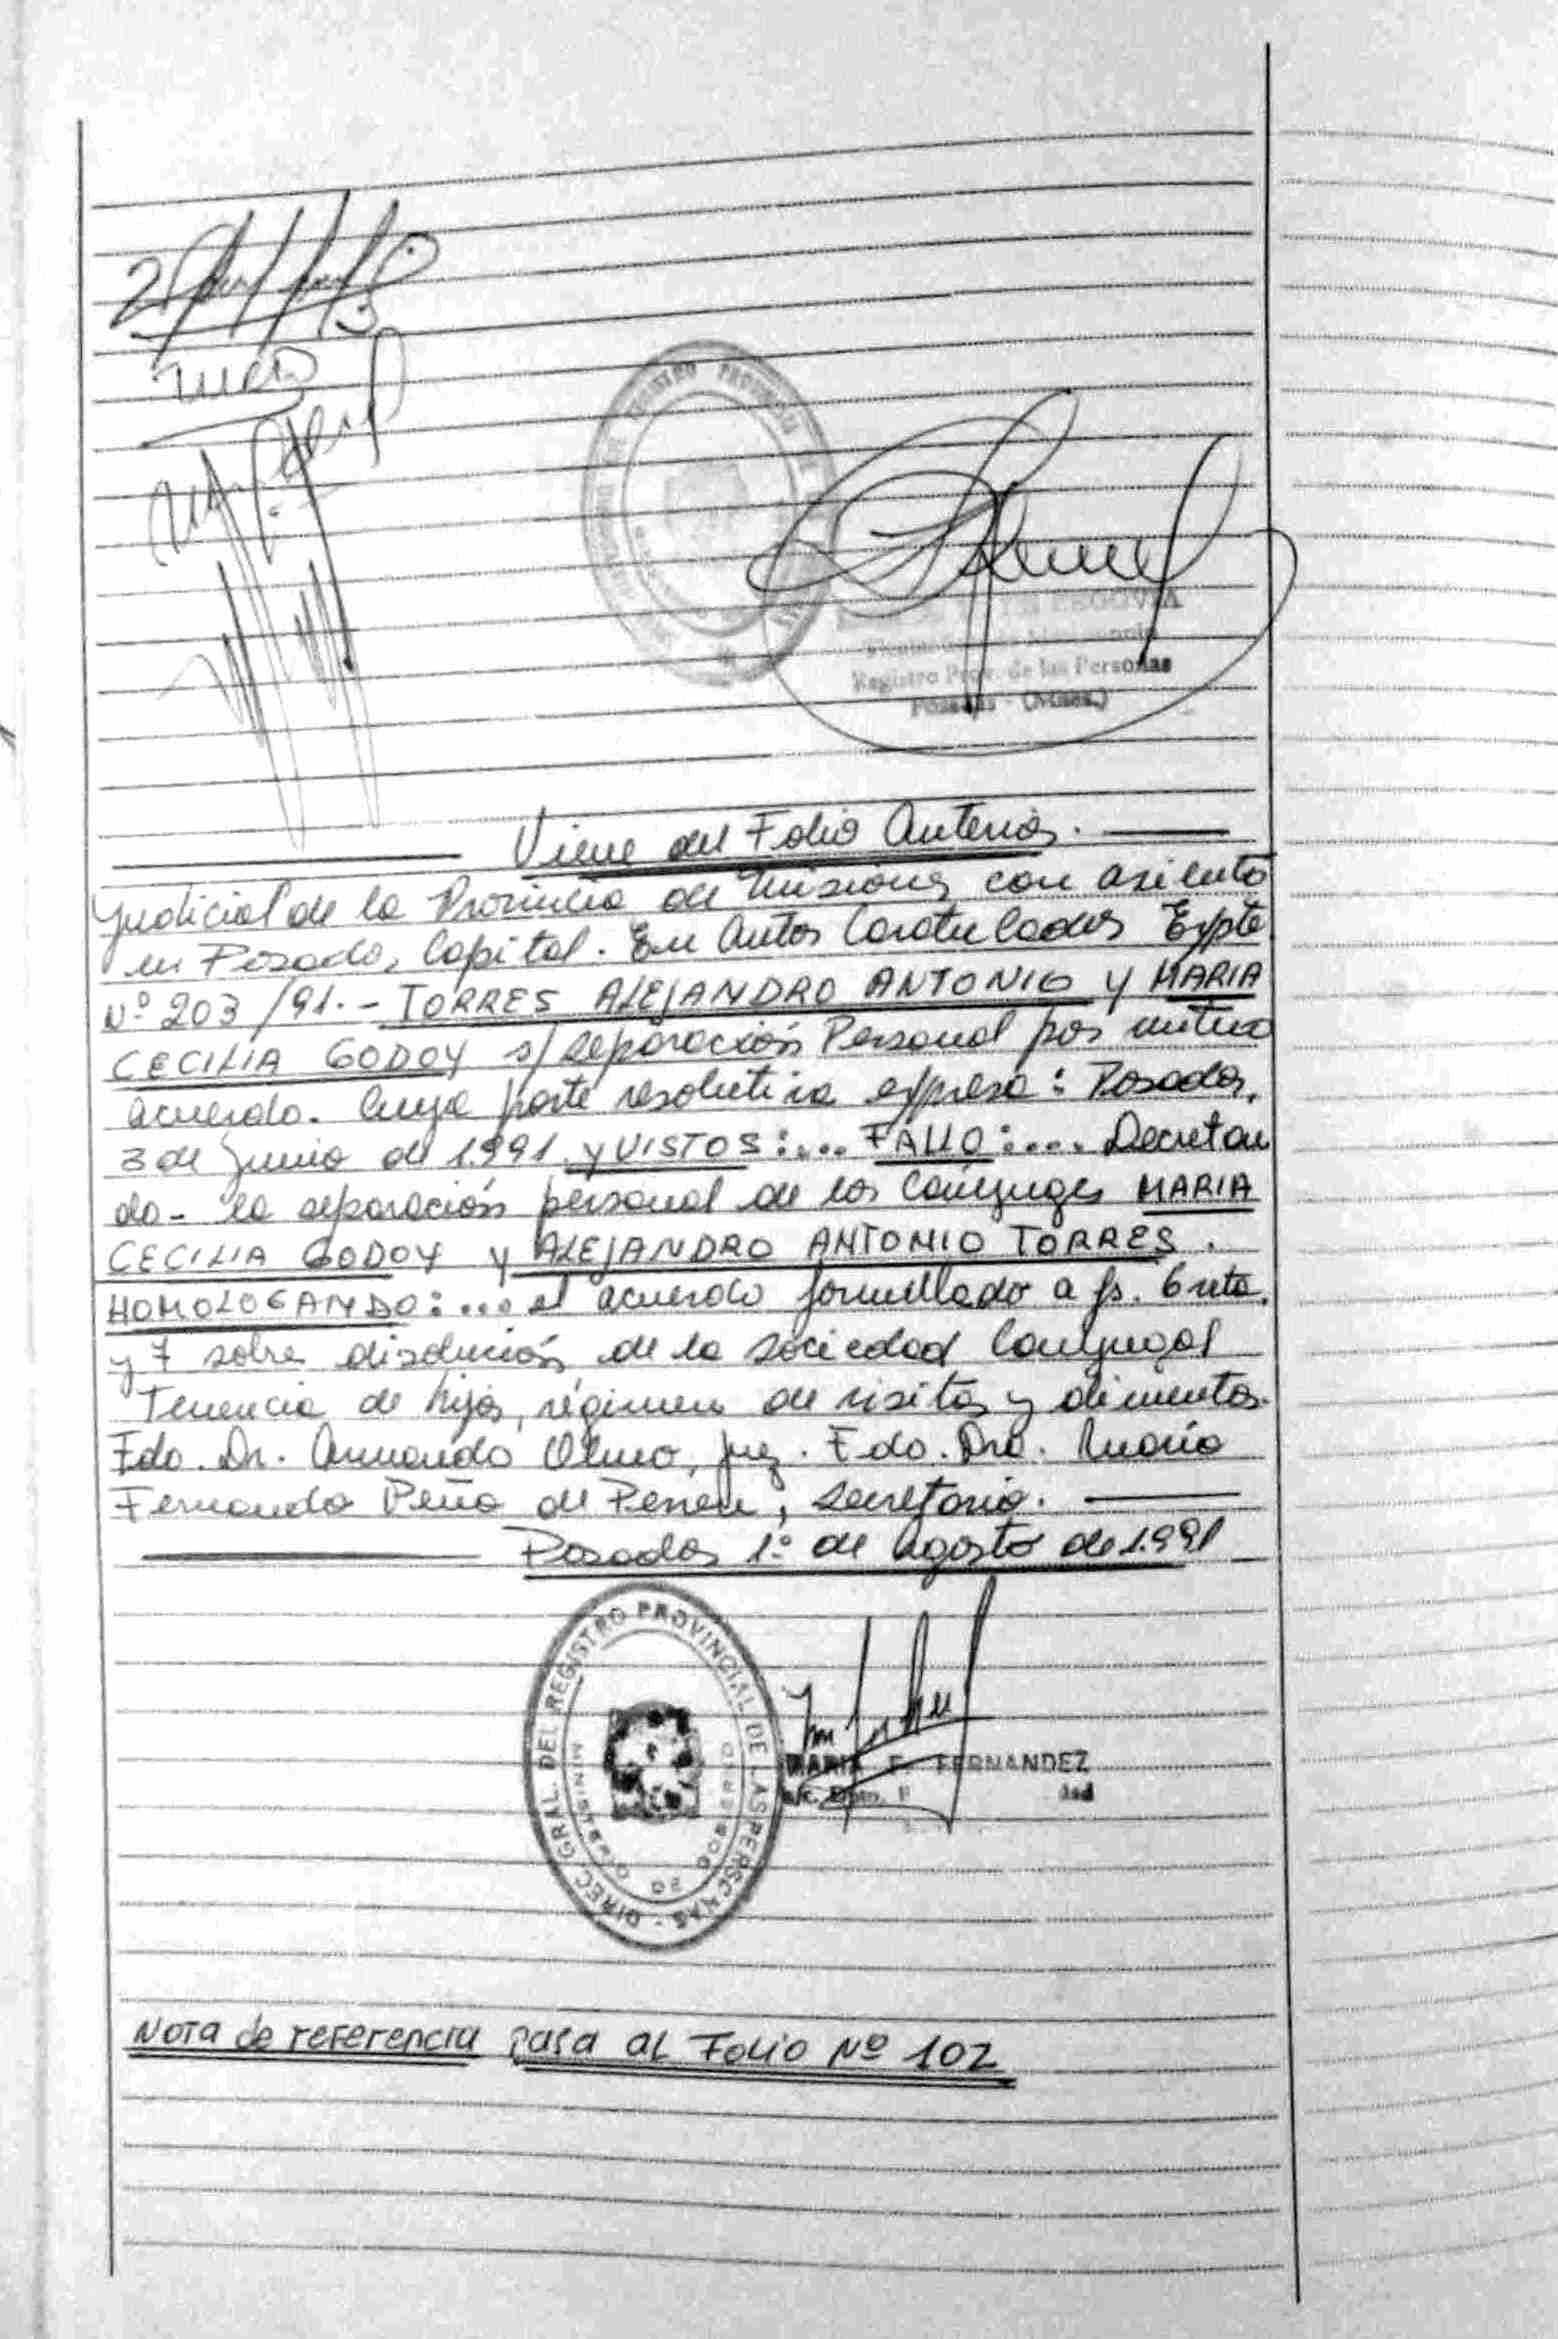 REGISTRO PROVINCIAL
SEGOVIA
Registro Prov. de las Personas
Posadas - (Mnes.)
Viene del Folio Anterior.
Judicial de la Provincia de Misiones con asiento
en Posadas, Capital. En Autos Caratulados Expte
Nº 203/91.- TORRES ALEJANDRO ANTONIO y MARIA
CECILIA GODOY s/ separación Personal por mutuo
acuerdo. Cuya parte resolutiva expresa: Posadas,
3 de Junio de 1.991. y VISTOS:... FALLO:.... Decretan
do- la separación personal de los Cónyuges MARIA
CECILIA GODOY y ALEJANDRO ANTONIO TORRES.
HOMOLOGANDO:... el acuerdo formullado a fs. 6 vta.
y 7 sobre disolución de la sociedad Conyugal
Tenencia de hijos, régimen de visitas y alimentos.
Fdo. Dr. Armando Olmo, Juez. Fdo. Dra. María
Fernanda Peña de, Secretaria.
Posadas 1º de Agosto de 1.991
DIREC. GRAL. DEL REGISTRO PROVINCIAL DE LAS PERSONAS -
MINISTERIO DE GOBIERNO
MARIA F. FERNANDEZ
a/c. Dpto.
Nota de referencia pasa al Folio Nº 102